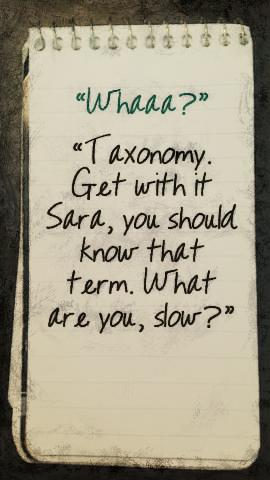 “Whaaa?”
“Taxonomy.
Get with it
Sara, you should
know that
term. What
are you, slow?”